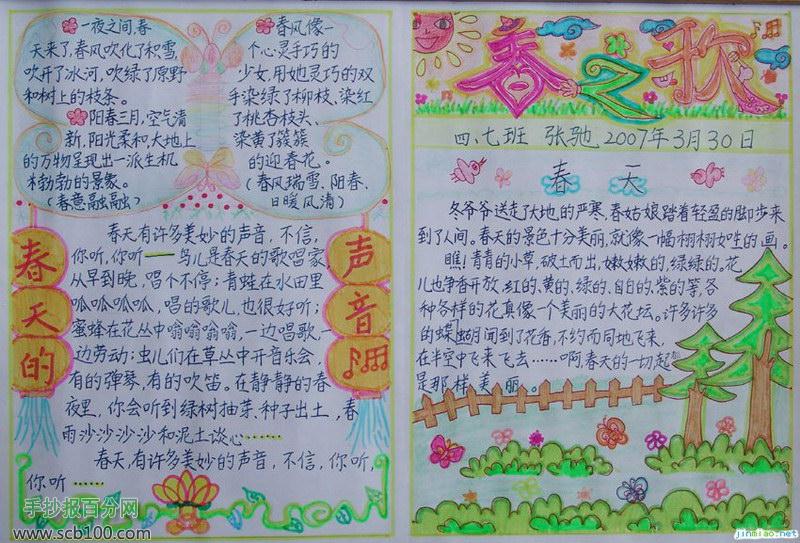 一夜之间,春
天来了,春风吹化了和雪,
吹开了冰河,吹绿了原野
和树上的枝条。
阳春三月,空气清
新,阳光柔和,大地上
的万物呈现出一派生机
勃勃的景象。
(春意融融)
春风像一
个心灵手巧的
少女,用她灵巧的双
手染绿了柳枝、染红
了桃杏枝头、
染黄了簇簇
的迎春花。
(春风瑞雪、阳春、
日暖风清)
春天的
声音
春天有许多美妙的声音,不信,
你听,你听——鸟儿是春天的歌唱家,
从早到晚,唱个不停;青蛙在水田里
呱呱呱呱,唱的歌儿也很好听;
蜜蜂在花丛中嗡嗡嗡嗡,一边唱歌,一
边劳动;虫儿们在草丛中开音乐会,
有的弹琴,有的吹笛。在静静的春
夜里,你会听到绿树抽芽、种子出土,春
雨沙沙沙沙和泥土谈心……
春天,有许多美妙的声音,不信,你听,
你听……
手抄报百分网
www.scb100.com
春之歌
四、七班 张驰 2007年3月30日
春天
冬爷爷送走了大地的严寒,春姑娘踏着轻盈的脚步来
到了人间。春天的景色十分美丽,就像一幅栩栩如生的画。
瞧!青青的小草,破土而出,嫩嫩的,绿绿的。花
儿也争香开放,红的、黄的、绿的、白的、紫的等,各
种各样的花真像一个美丽的大花坛。许多许多
的蝶间闻到了花香,不约而同地飞来,
在半空中飞来飞去……啊,春天的一切起
是那样美丽。
jinmiao.net